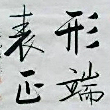 形端
表正